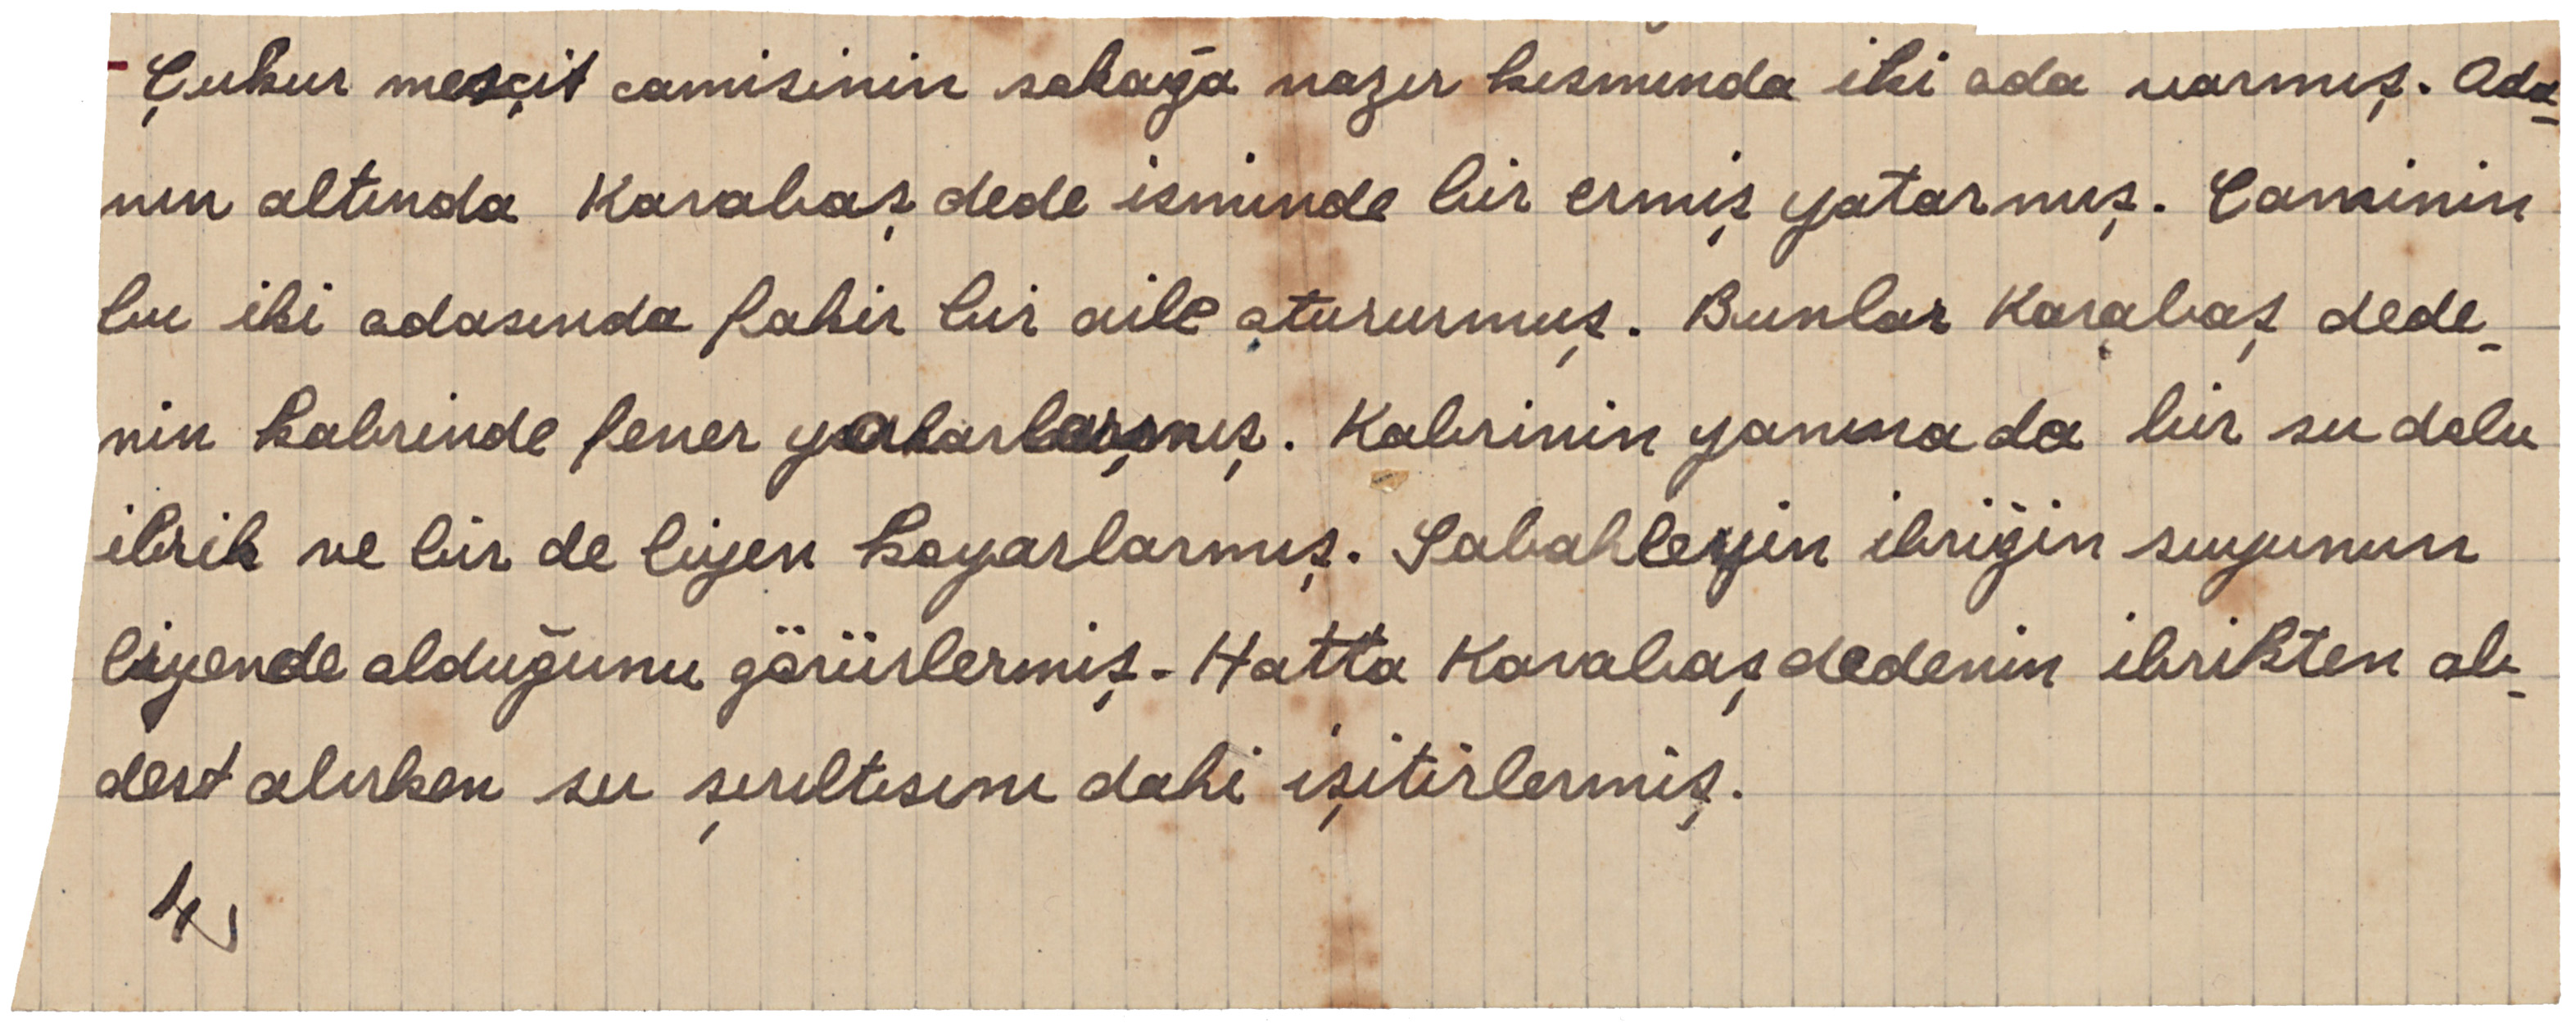 - Çukur mescit camisinin sokağa nazır kısmında iki oda varmış. Oda-
nın altında Karabaş dede isminde bir ermiş yatarmış. Caminin
bu iki odasında fakir bir aile otururmuş. Bunlar Karabaş dede-
nin kabrinde fener yakarlarmış. Kabrinin yanına da bir su dolu
ibrik ve bir de liyen koyarlarmış. Sabahleyin ibriğin suyunun
liyende olduğunu görürlermiş. Hatta Karabaş dedenin ibrikten ab-
dest alırken su şırıltısını dahi işitirlermiş.